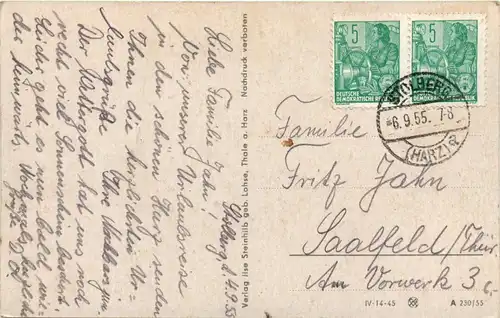 Stolberg, d. 4.9.55
Liebe Familie Jahn!
Von unserer Urlaubsreise
in den schönen Harz senden
Ihnen die herzlichsten Ur-
laubsgrüße Ihre
Der Wettergott hat uns noch
recht viel Sonnenschein beschert.
Leider geht es nun bald wie-
der heimwärts. Nochmals herzliche
Grüße
Verlag Ilse Steinhilb geb. Lohse, Thale a. Harz Nachdruck verboten
5 5
DEUTSCHE
DEMOKRATISCHE REPUBLIK
STOLBERG
-6.9.55. 7-8
(HARZ)
Familie
Fritz Jahn
Saalfeld/Thür.
Am Vorwerk 3
IV-14-45 A 230/55